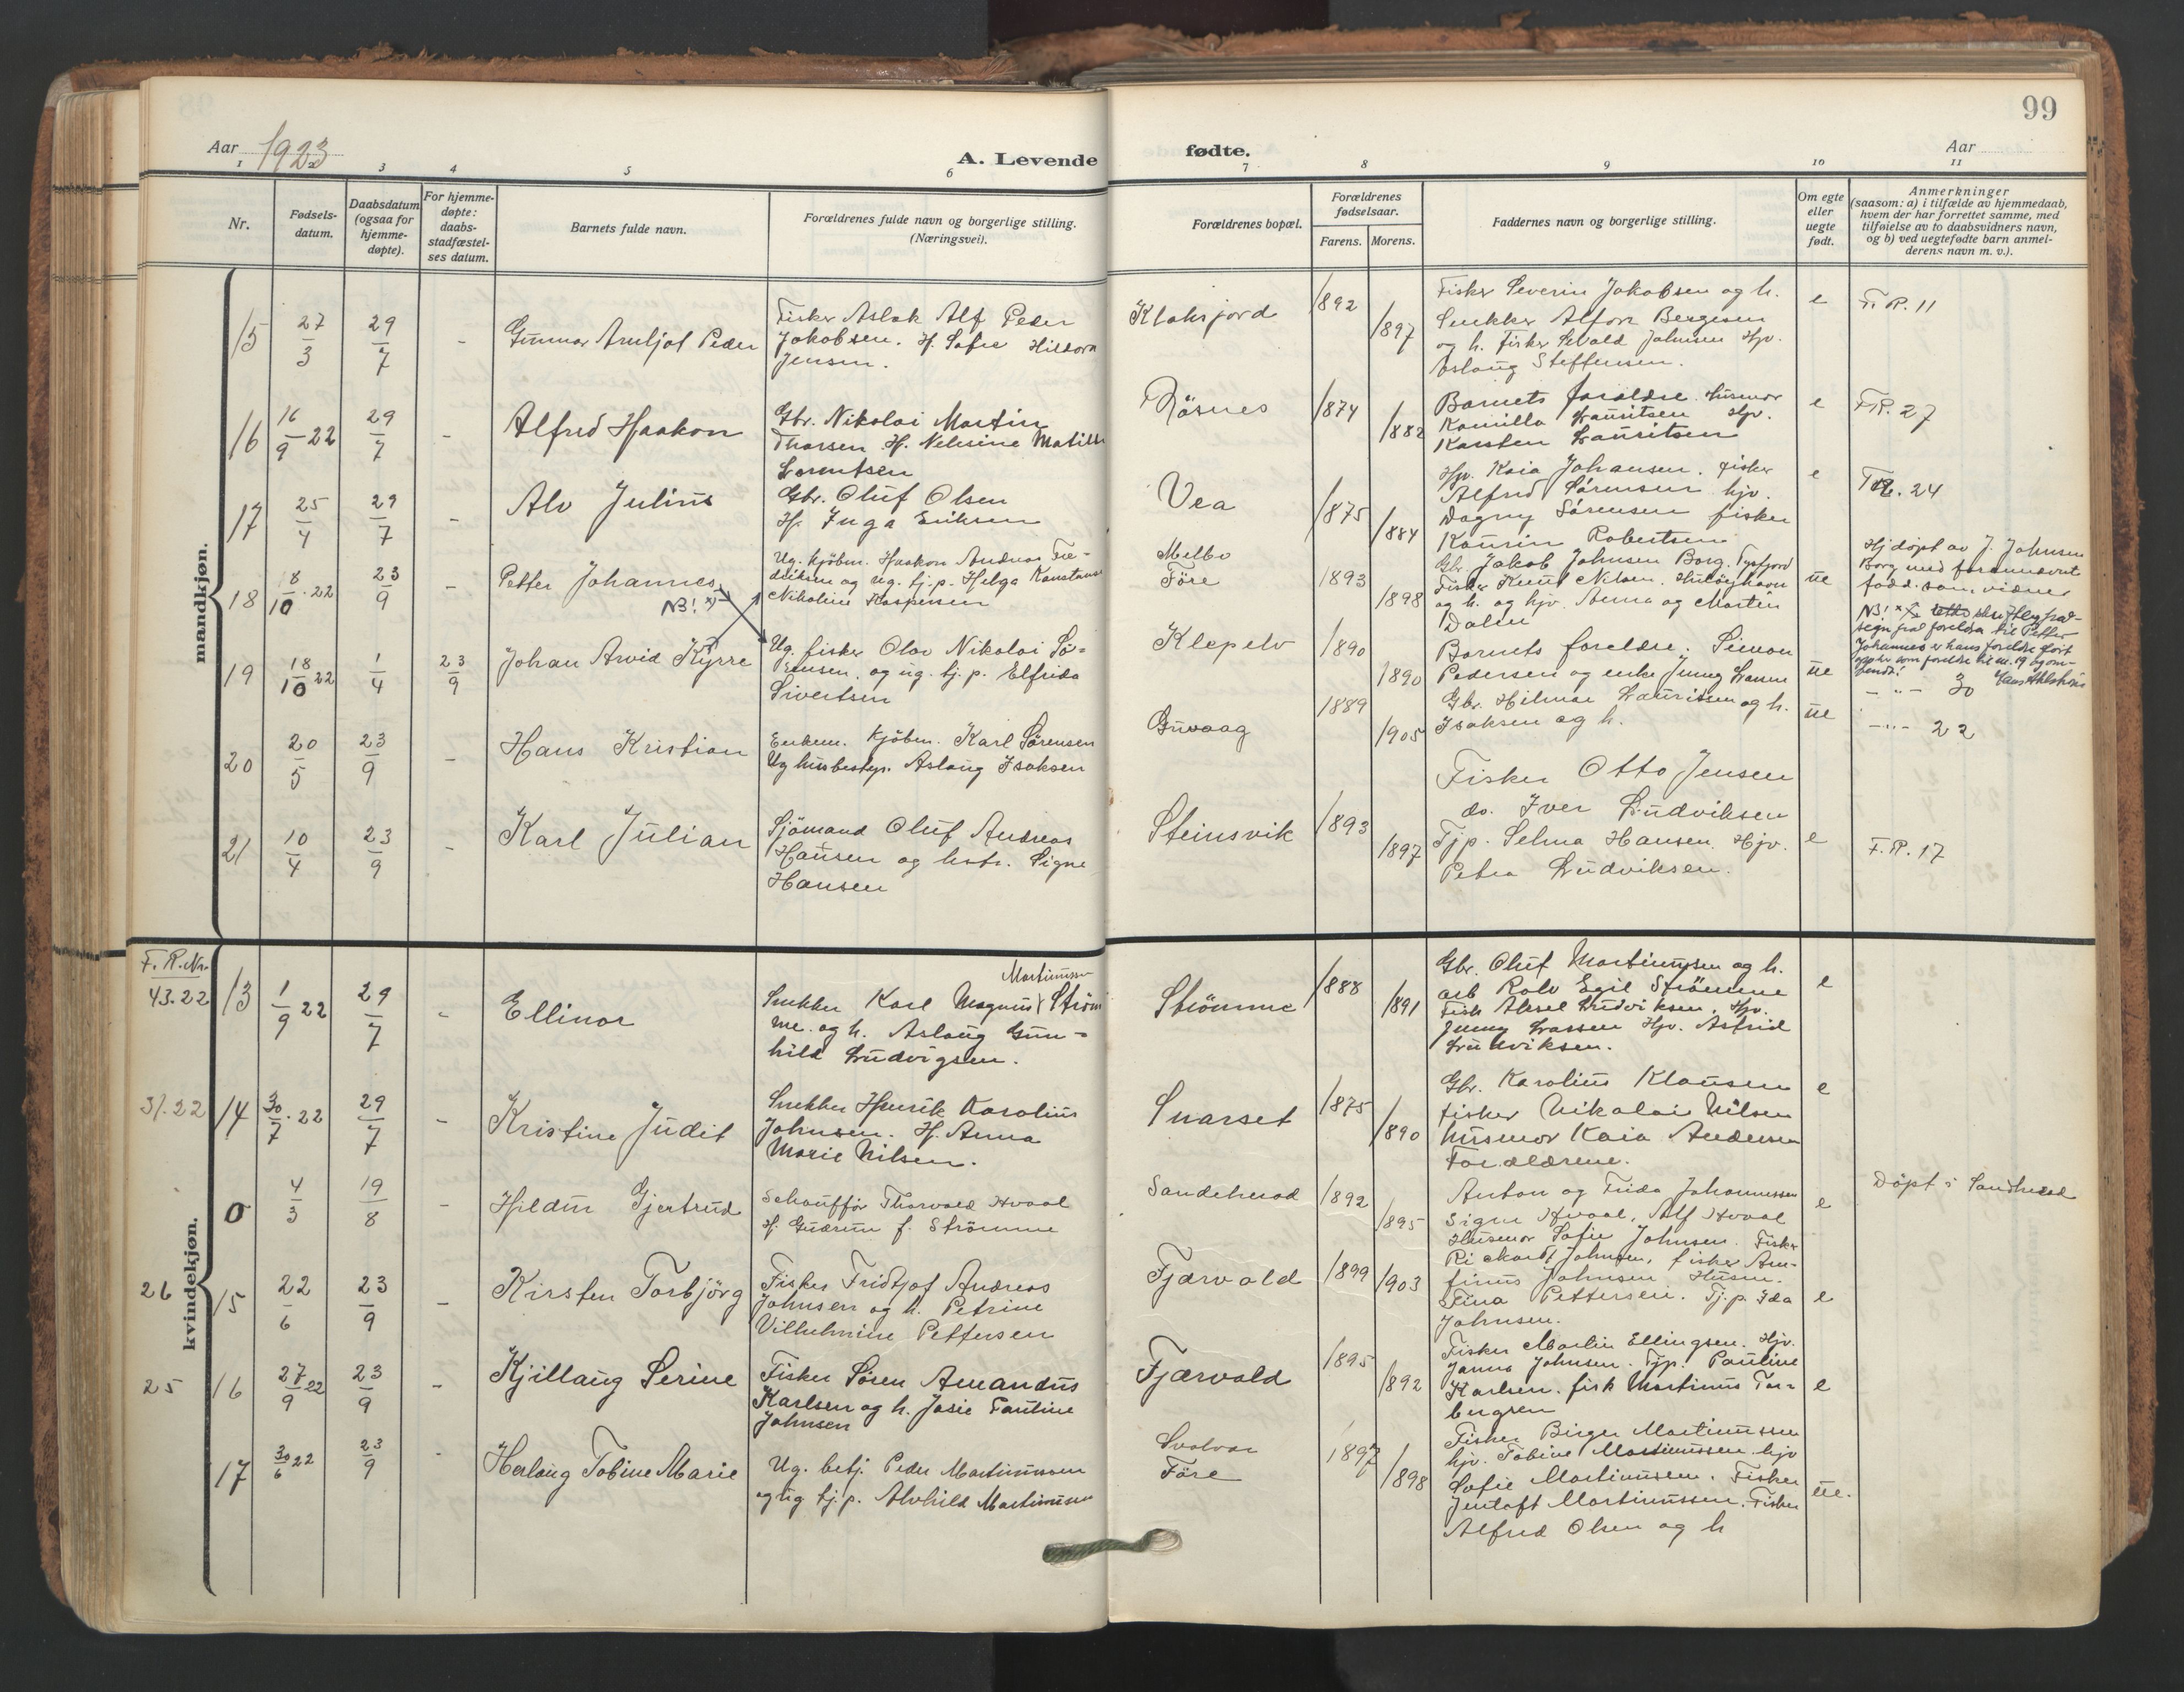 99
Aar 1923
A. Levende
fødte.
Aar
1 2 3 4 5 6 7 8 9 10 11
Nr.
Fødsels-
datum.
Daabsdatum
(ogsaa for
hjemme-
døpte).
For hjemme-
døpte:
daabs-
stadfæstel-
ses datum.
Barnets fulde navn.
Forældrenes fulde navn og borgerlige stilling.
(Næringsvei).
Forældrenes bopæl.
Forældrenes
fødselsaar.
Farens. Morens.
Faddernes navn og borgerlige stilling.
Om egte
eller
uegte
født.
Anmerkninger
(saasom: a) i tilfælde av hjemmedaab,
hvem der har forrettet samme, med
tilføielse av to daabsvidners navn,
og b) ved uegtefødte barn anmel-
derens navn m. v.).
mandkjøn.
15 27/3 29/7 - Gunnar Arnljot Peder
Fisker Aslak Alf Peder
Jakobsen. H. Sofie Hildora
Jensen.
Klaksjord 1892 1897
Fisker Severin Jakobsen og h.
Snekker Alfon Bergesen
og h. Fisker Sevald Johnsen Hjv.
Aslaug Steffensen.
e F. R. 11
16 16/9 22 29/7 - Alfred Haakon
Gbr. Nikolai Martin
Thorsen H. Nelesine Matilde
Lorentsen
Røsnes 1874 1882
Barnets foraldre. Husmor
Kamilla Lauritsen Hjv.
Karsten Lauritsen
e F.R. 27
17 25/4 29/7 - Alv Julius
Gbr. Oluf Olsen
H. Inga Eriksen
Vea 1875 1884
Hjv. Kaia Johansen. Fisker
Alfred Sørensen hjv.
Dagny Sørensen fisker
Kaurin Robertsen
e F.R. 24
18 18/10 22 23/9 - Petter Johannes
NB! x)
Ug. kjøbm. Haakon Andreas Fre-
driksen og ug. tj.p. Helga Konstanse
Nikoline Kaspersen
Melbo
Føre 1893 1898
Gbr. Jakob Johnsen Borg. Tysfjord
Fisker Knut Nilsen. Huløyhavn
og h. og hjv. Anna og Martin
Dalen
ue
Hj.døpt av J. Johnsen
Borg med forannævnt
fadd. som vidner
19 18/10 22 1/4 23/9 Johan Arvid Kyrre
Ug. fisker Olav Nikolai Sø-
rensen. og ug. tj. p. Elfrida
Sivertsen
Klepelv 1890 1890
Barnets forældre. Simon
Pedersen og enke Jenny
ue
NB!
Johannes er hans foreldre ført
opp her som foreldre til nr. 19 og om-
vendt!
-"- 30
20 20/5 23/9 - Hans Kristian
Enkem. kjøbm. Karl Sørensen
Ug husbestyr. Aslaug Isaksen
Guvaag 1889 1905
Gbr. Hilmar Lauritsen og h.
Isaksen og h.
ue -"- 22
21 10/4 23/9 - Karl Julian
Sjømand Oluf Andreas
Hansen og hstr. Signe
Hansen
Steinsvik 1893 1897
Fisker Otto Jensen
do. Iver Ludviksen
Tjp. Selma Hansen. Hjv.
Petra Ludviksen.
e F. R. 17
kvindekjøn.
F. R. Nr.
43.22 13 1/9 22 29/7 - Ellinor
Martinussen
Snekker Karl Magnus Strøm
me. og h. Aslaug Gun-
hild Ludvigsen.
Strømme 1888 1891
Gbr. Oluf Martinussen og h.
arb Rolv Egil Strømme
Fisk Aksel Ludviksen. Hjv.
Jenny Larssen Hjv. Astrid
Ludviksen.
e
31.22 14 30/7.22 29/7 - Kristine Judit
Snekker Henrik Karolius
Johnsen. H. Anna
Marie Nilsen.
Snarset 1875 1890
Gbr. Karolius Klausen
fisker Nikolai Nilsen
husmor Kaia Andersen
Forældrene.
e
0 4/3 19/8 - Hildur Gjertrud
Schauffør Thorvald Hvaal
H. Gudrun f. Strømme
Sandeherad 1892 1895
Anton og Frida Johannessen
Signe Hvaal, Alf Hvaal
e Døpt i Sandherad
26 15 22/6 23/9 - Kirsten Torbjørg
Fisker Fridtjof Andreas
Johnsen og h. Petrine
Vilhelmine Pettersen
Fjærvold 1899 1903
Husmor Sofie Johnsen. Fisker
Rikart Johnsen, fisker Arn-
finus Johnsen Husm.
Stina Pettersen. Tj.p. Ida
Johnsen.
e
25 16 27/9 22 23/9 - Kjillaug Serine
Fisker Søren Amandus
Karlsen og h. Josie Pauline
Johnsen
Fjærvold 1895 1892
Fisker Martin Ellingsen. Hjv.
Janna Johnsen. Tjp. Pauline
Karlsen. fisk Martinus Tor-
bergsen
e
17 30/6 22 23/9 - Herlaug Tobine Marie
Ug. betj. Peder Martinussen
og ug tj. p. Alvhild Martinussen
Svolvær
Føre 1897 1898
Fisker Birger Martinussen
hjv. Tobine Martinussen. hjv
Sofie Martinussen. Fisker
Jentoft Martinussen. Fisker
Alfred Olsen og h
ue.